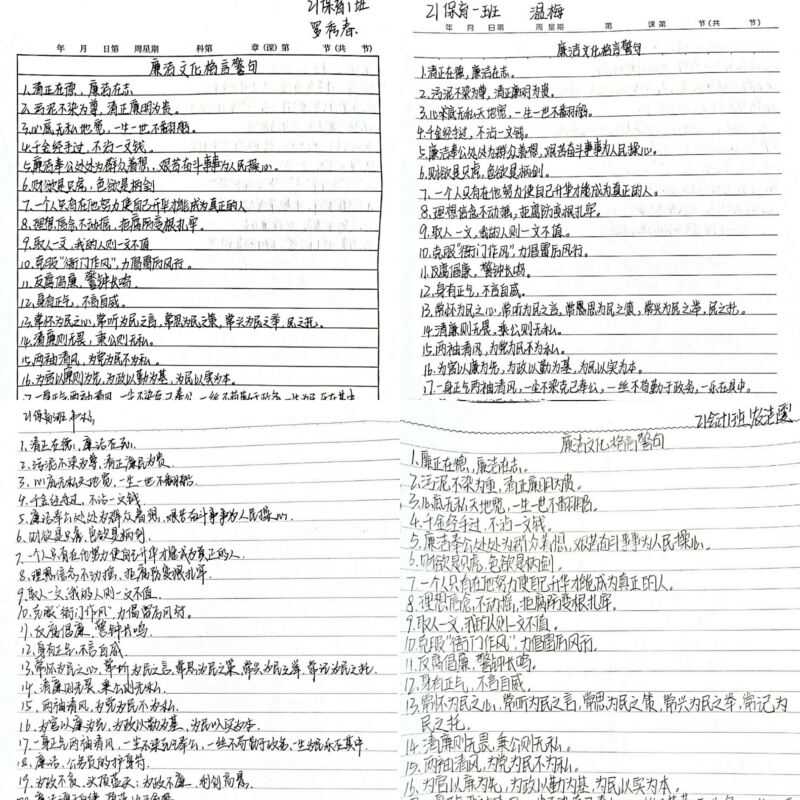 21保育1班
年 月 日第 周星期 科第 章(课)第 节(共 节)
廉洁文化格言警句
1.清正在德，廉洁在志。
2.污泥不染为尊，清正廉明为贵。
3.心底无私天地宽，一生一世不翻船。
4.千金经手过，不沾一文钱。
5.廉洁奉公处处为群众着想，艰苦奋斗事事为人民操心。
6.财欲是只虎，色欲是柄剑
7.一个人只有在他努力使自己升华才能成为真正的人
8.理想信念不动摇，拒腐防变根扎牢
9.取人一文，我的人则一文不值
10.克服“衙门作风”，力倡雷厉风行。
11.反腐倡廉，警钟长鸣
12.身有正气，不言自威。
13.常怀为民之心，常听为民之言，常思为民之策，常兴为民之举，民之托。
14.清廉则无畏，秉公则无私。
15.两袖清风，为党为民不为私。
16.为官以廉为先，为政以勤为基，为民以实为本。
21保育一班 温梅
年 月 日第 周星期 第 课第 节(共 节)
廉洁文化格言警句
1.清正在德，廉洁在志。
2.污泥不染为尊，清正廉明为贵。
3.心底无私天地宽，一生一世不翻船。
4.千金经手过，不沾一文钱。
5.廉洁奉公处处为群众着想，艰苦奋斗事事为人民操心。
6.财欲是只虎，色欲是柄剑。
7.一个人只有在他努力使自己升华才能成为真正的人。
8.理想信念不动摇，拒腐防变根扎牢。
9.取人一文，我的人则一文不值。
10.克服“衙门作风”，力倡雷厉风行。
11.反腐倡廉，警钟长鸣。
12.身有正气，不言自威。
13.常怀为民之心，常听为民之言，常思为民之策，常兴为民之举，民之托。
14.清廉则无畏，秉公则无私。
15.两袖清风，为党为民不为私。
16.为官以廉为先，为政以勤为基，为民以实为本。
17.一身正气两袖清风，一尘不染克己奉公，一丝不苟勤于政务，一乐在其中。
21保育1班
1.清正在德，廉洁在志。
2.污泥不染为尊，清正廉明为贵
3.心底无私天地宽，一生一世不翻船
4.千金经手过，不沾一文钱
5.廉洁奉公处处为群众着想，艰苦奋斗事事为人民操心.
6.财欲是只虎，色欲是柄剑.
7.一个人只有在他努力使自己升华才能成为真正的人.
8.理想信念不动摇，拒腐防变根扎牢.
9.取人一文，我的人则一文不值
10.克服“衙门作风”，力倡雷厉风行.
11.反腐倡廉，警钟长鸣.
12.身有正气，不言自威.
13.常怀为民之心，常听为民之言，常思为民之策，常兴为民之举，常记为民之托.
14.清廉则无畏，秉公则无私.
15.两袖清风，为党为民不为私.
16.为官以廉为先，为政以勤为基，为民以实为本.
17.一身正气两袖清风，一尘不染克己奉公，一丝不苟勤于政务，一生为民乐在其中.
18.廉洁，公务员的护身符
19.为政不贪，头顶蓝天；为政不廉，
21会计1班
廉洁文化格言警句
1.廉正在德，廉洁在志。
2.污泥不染为重，清正廉明为贵。
3.心底无私天地宽，一生一世不翻船。
4.千金经手过，不沾一文钱。
5.廉洁奉公处处为群众着想，艰苦奋斗事事为人民操心。
6.财欲是只虎，色欲是柄剑。
7.一个人只有在他努力使自己升华才能成为真正的人。
8.理想信念不动摇，拒腐防变根扎牢。
9.取人一文，我的人则一文不值。
10.克服“衙门作风”，力倡雷厉风行。
11.反腐倡廉，警钟长鸣。
12.身有正气，不言自威。
13.常怀为民之心，常听为民之言，常思为民之策，常兴为民之举，常记为
民之托。
14.清廉则无畏，秉公则无私。
15.两袖清风，为党为民不为私。
16.为官以廉为先，为政以勤为基，为民以实为本。